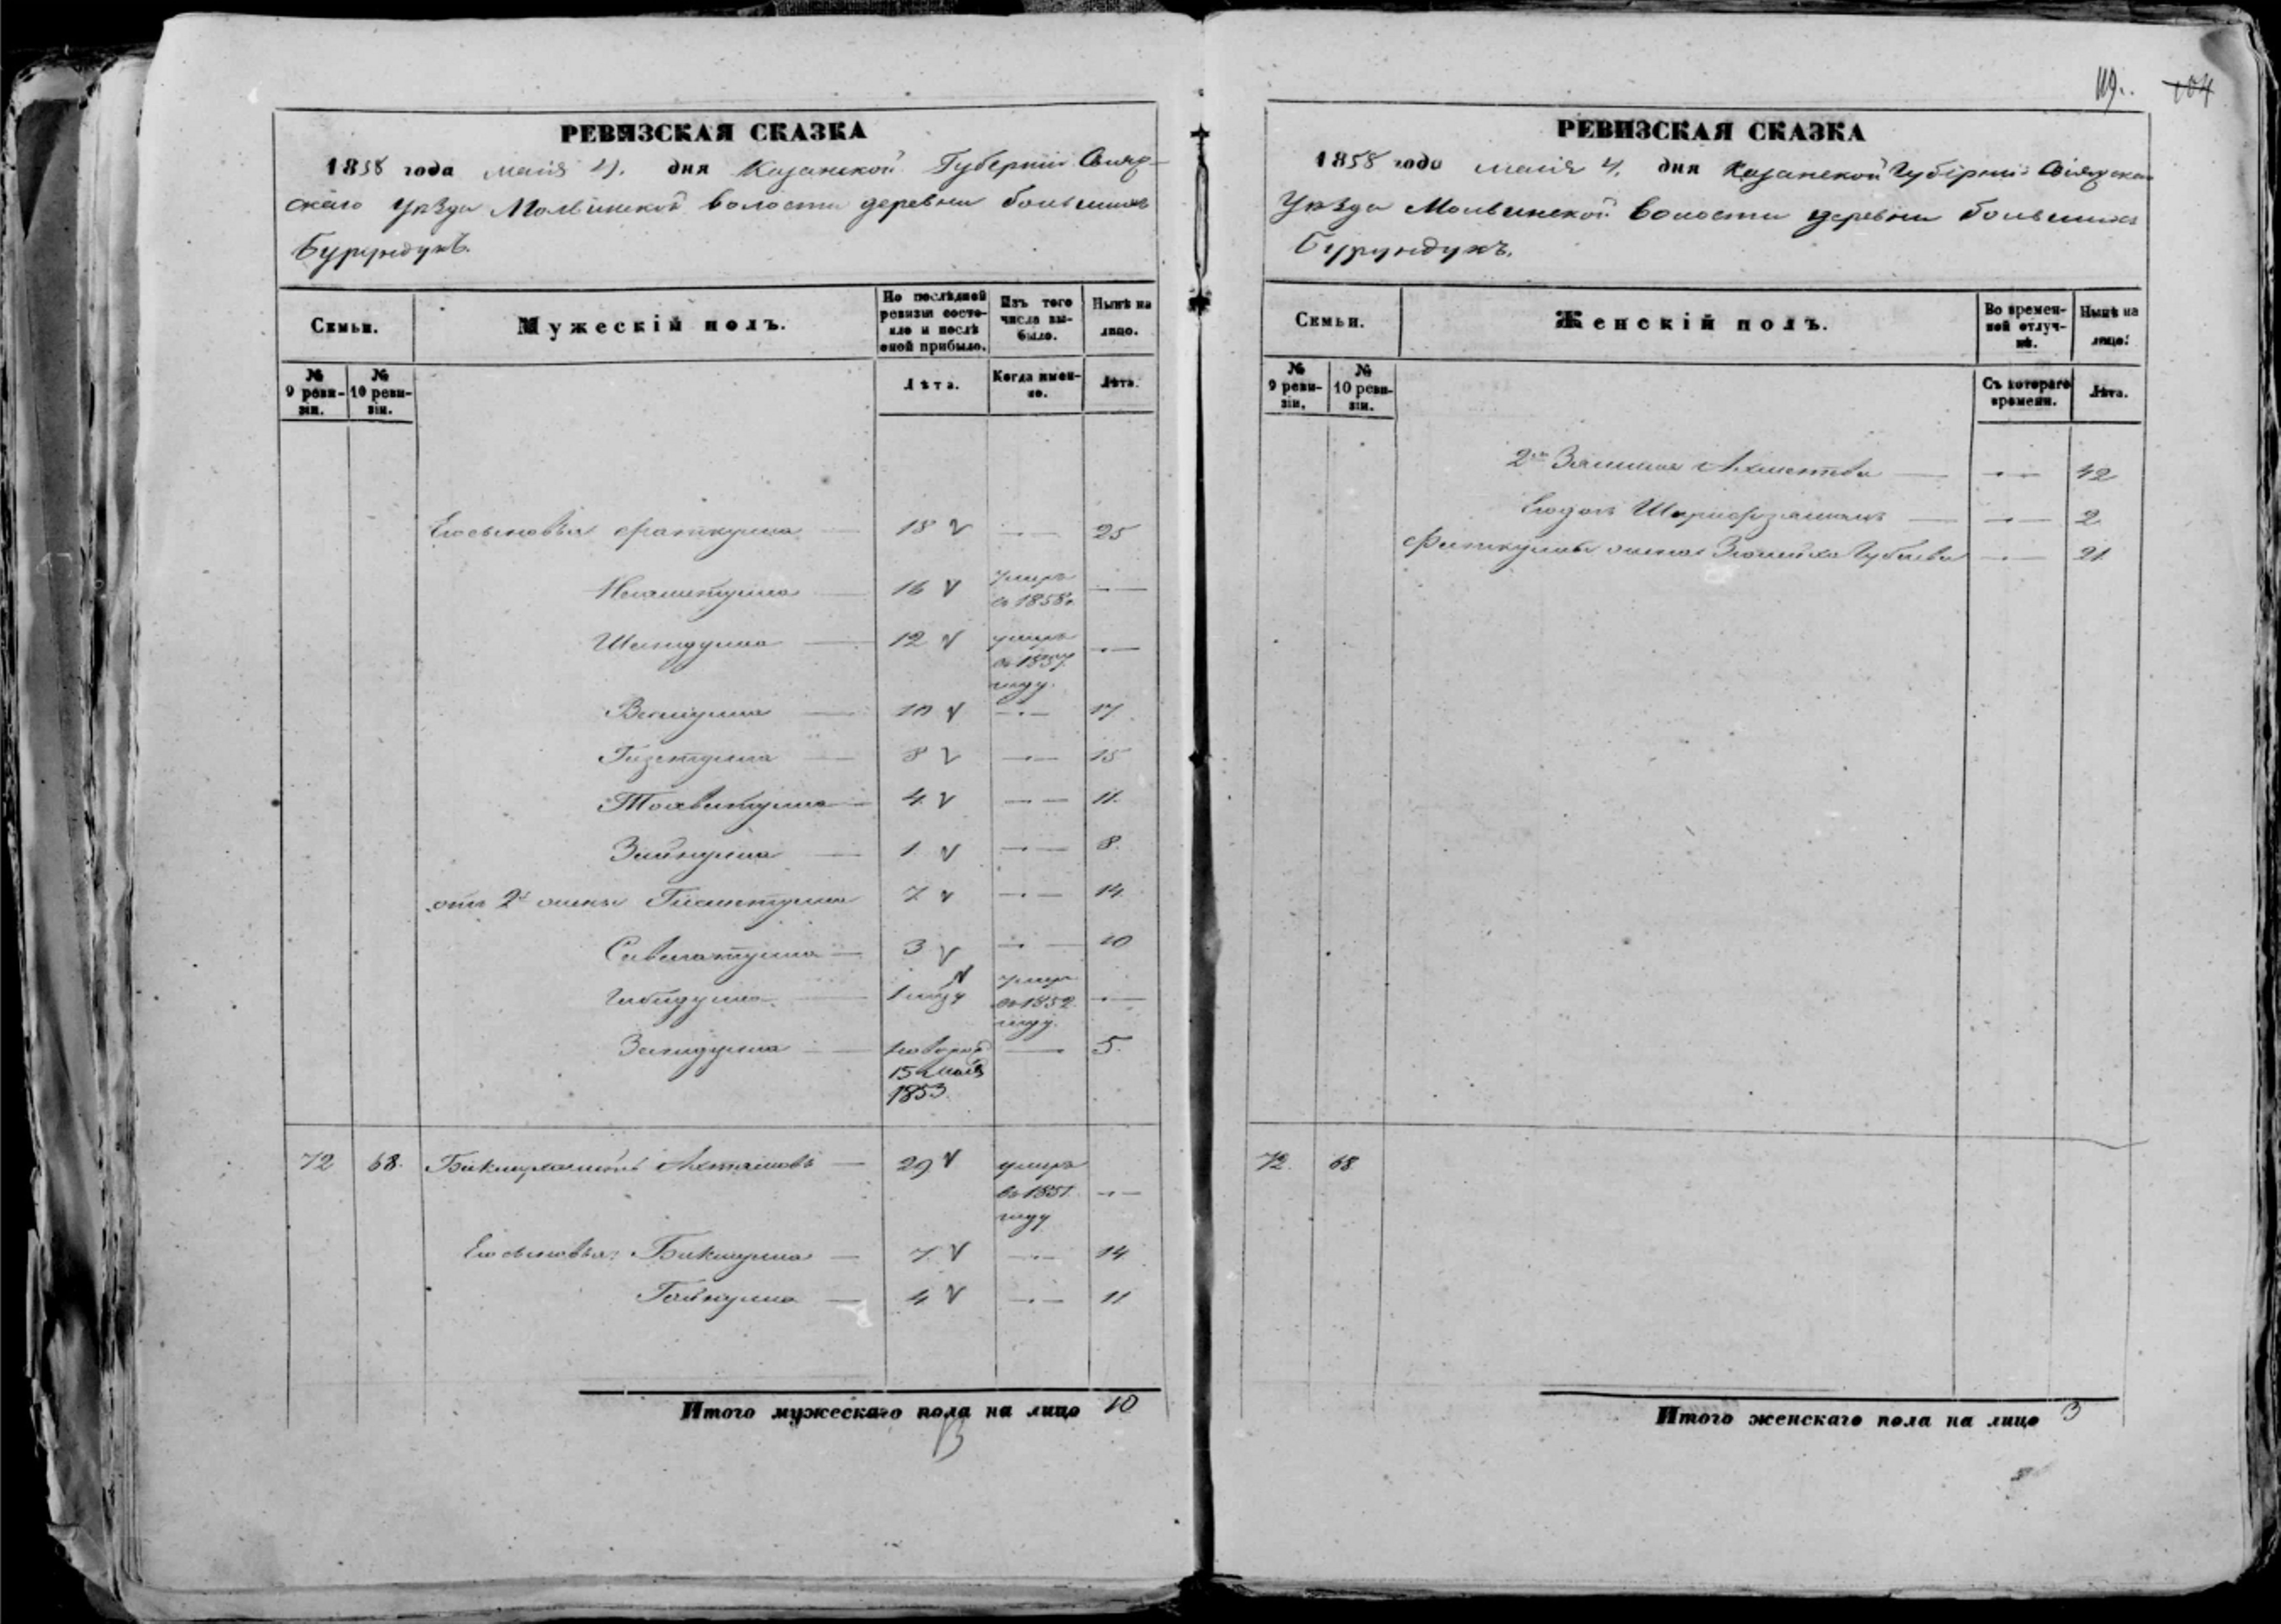 РЕВИЗСКАЯ СКАЗКА
1858 года маія 4. дня Казанской Губерніи Свіяж-
скаго Уѣзда Молвинской волости деревни большихъ
Бурундукъ.
Семьи.
Мужескій полъ.
По послѣдней ревизіи состо-
яло и послѣ оной прибыло.
Изъ того числа вы-
было.
Нынѣ на лицо.
№ 9 реви-
зіи.
№ 10 реви-
зіи.
Лѣта.
Когда имен-
но.
Лѣта.
Его сыновья Фаткулла 18 25
16 умеръ
въ 1858г.
12 умеръ
въ 1857
году.
Валиулла 10 17
8 15
4 11.
Зайнулла 1. 8.
отъ 2й жены 7 14
3 10
Губидулла 1 году умеръ
въ 1852
году.
Загидулла новорож 5.
15 маія
1853.
72 68. Бикмухаметъ Ахтямовъ 29 умеръ
въ 1851
году
Его сыновья: Бикмулла 7 14
Гайнулла 4 11
Итого мужескаго пола на лицо 10
13
119. 104
РЕВИЗСКАЯ СКАЗКА
1858 года маія 4. дня Казанской Губерніи Свіяжскаго
Уѣзда Молвинской волости деревни большихъ
Бурундукъ.
Семьи.
Женскій полъ.
Во времен-
ной отлуч-
кѣ.
Нынѣ на лицо.
№ 9 реви-
зіи.
№ 10 реви-
зіи.
Съ котораго времени.
Лѣта.
2я Ахметева 42
Его дочь Шарифзямалъ 2
Фаткуллы жена Зюлейха Губаева 21
72. 68
Итого женскаго пола на лицо 3